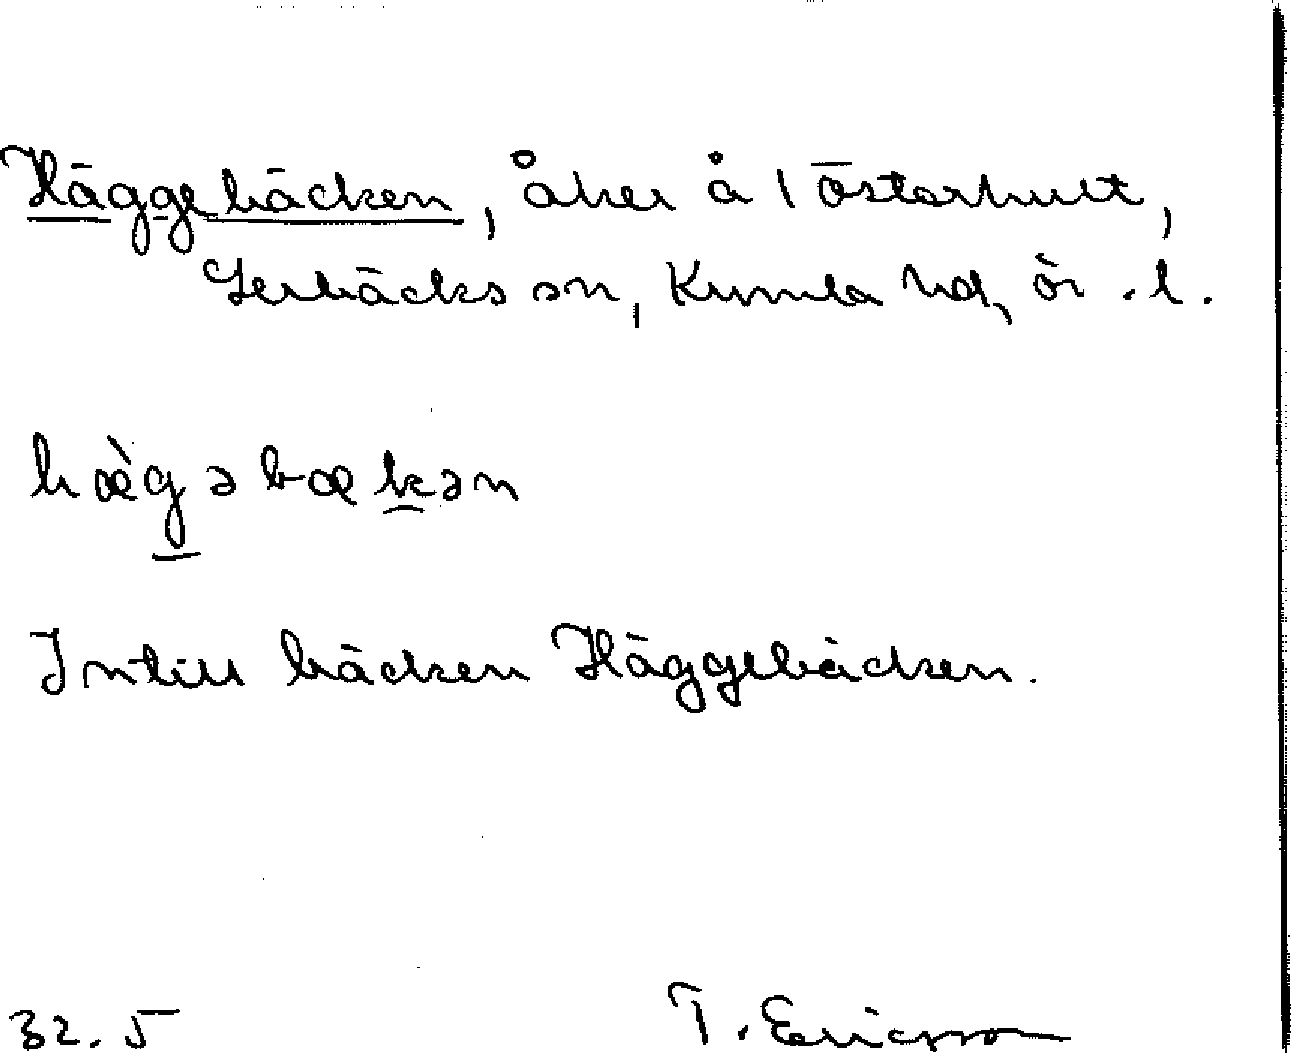 Häggebäcken, åker å 1 Österhult,
Lerbäcks sn, Kumla hd, Ör. l.
hæ̀gəbækən
Intill bäcken Häggebäcken.
32.5 T. Ericsson